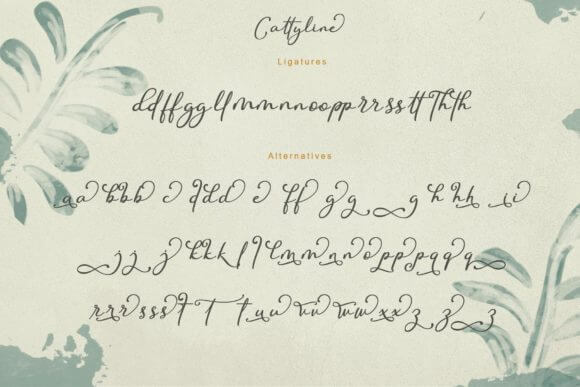 Cattyline
Ligatures
ddffggllmmnnoopprrssttThth
Alternatives
aa bbb c ddd c ff gg g g h hh i i
j j j kkk l l l m m n n o p p p q q q
r r r r s s s t T T t u u v v w w x x z z z